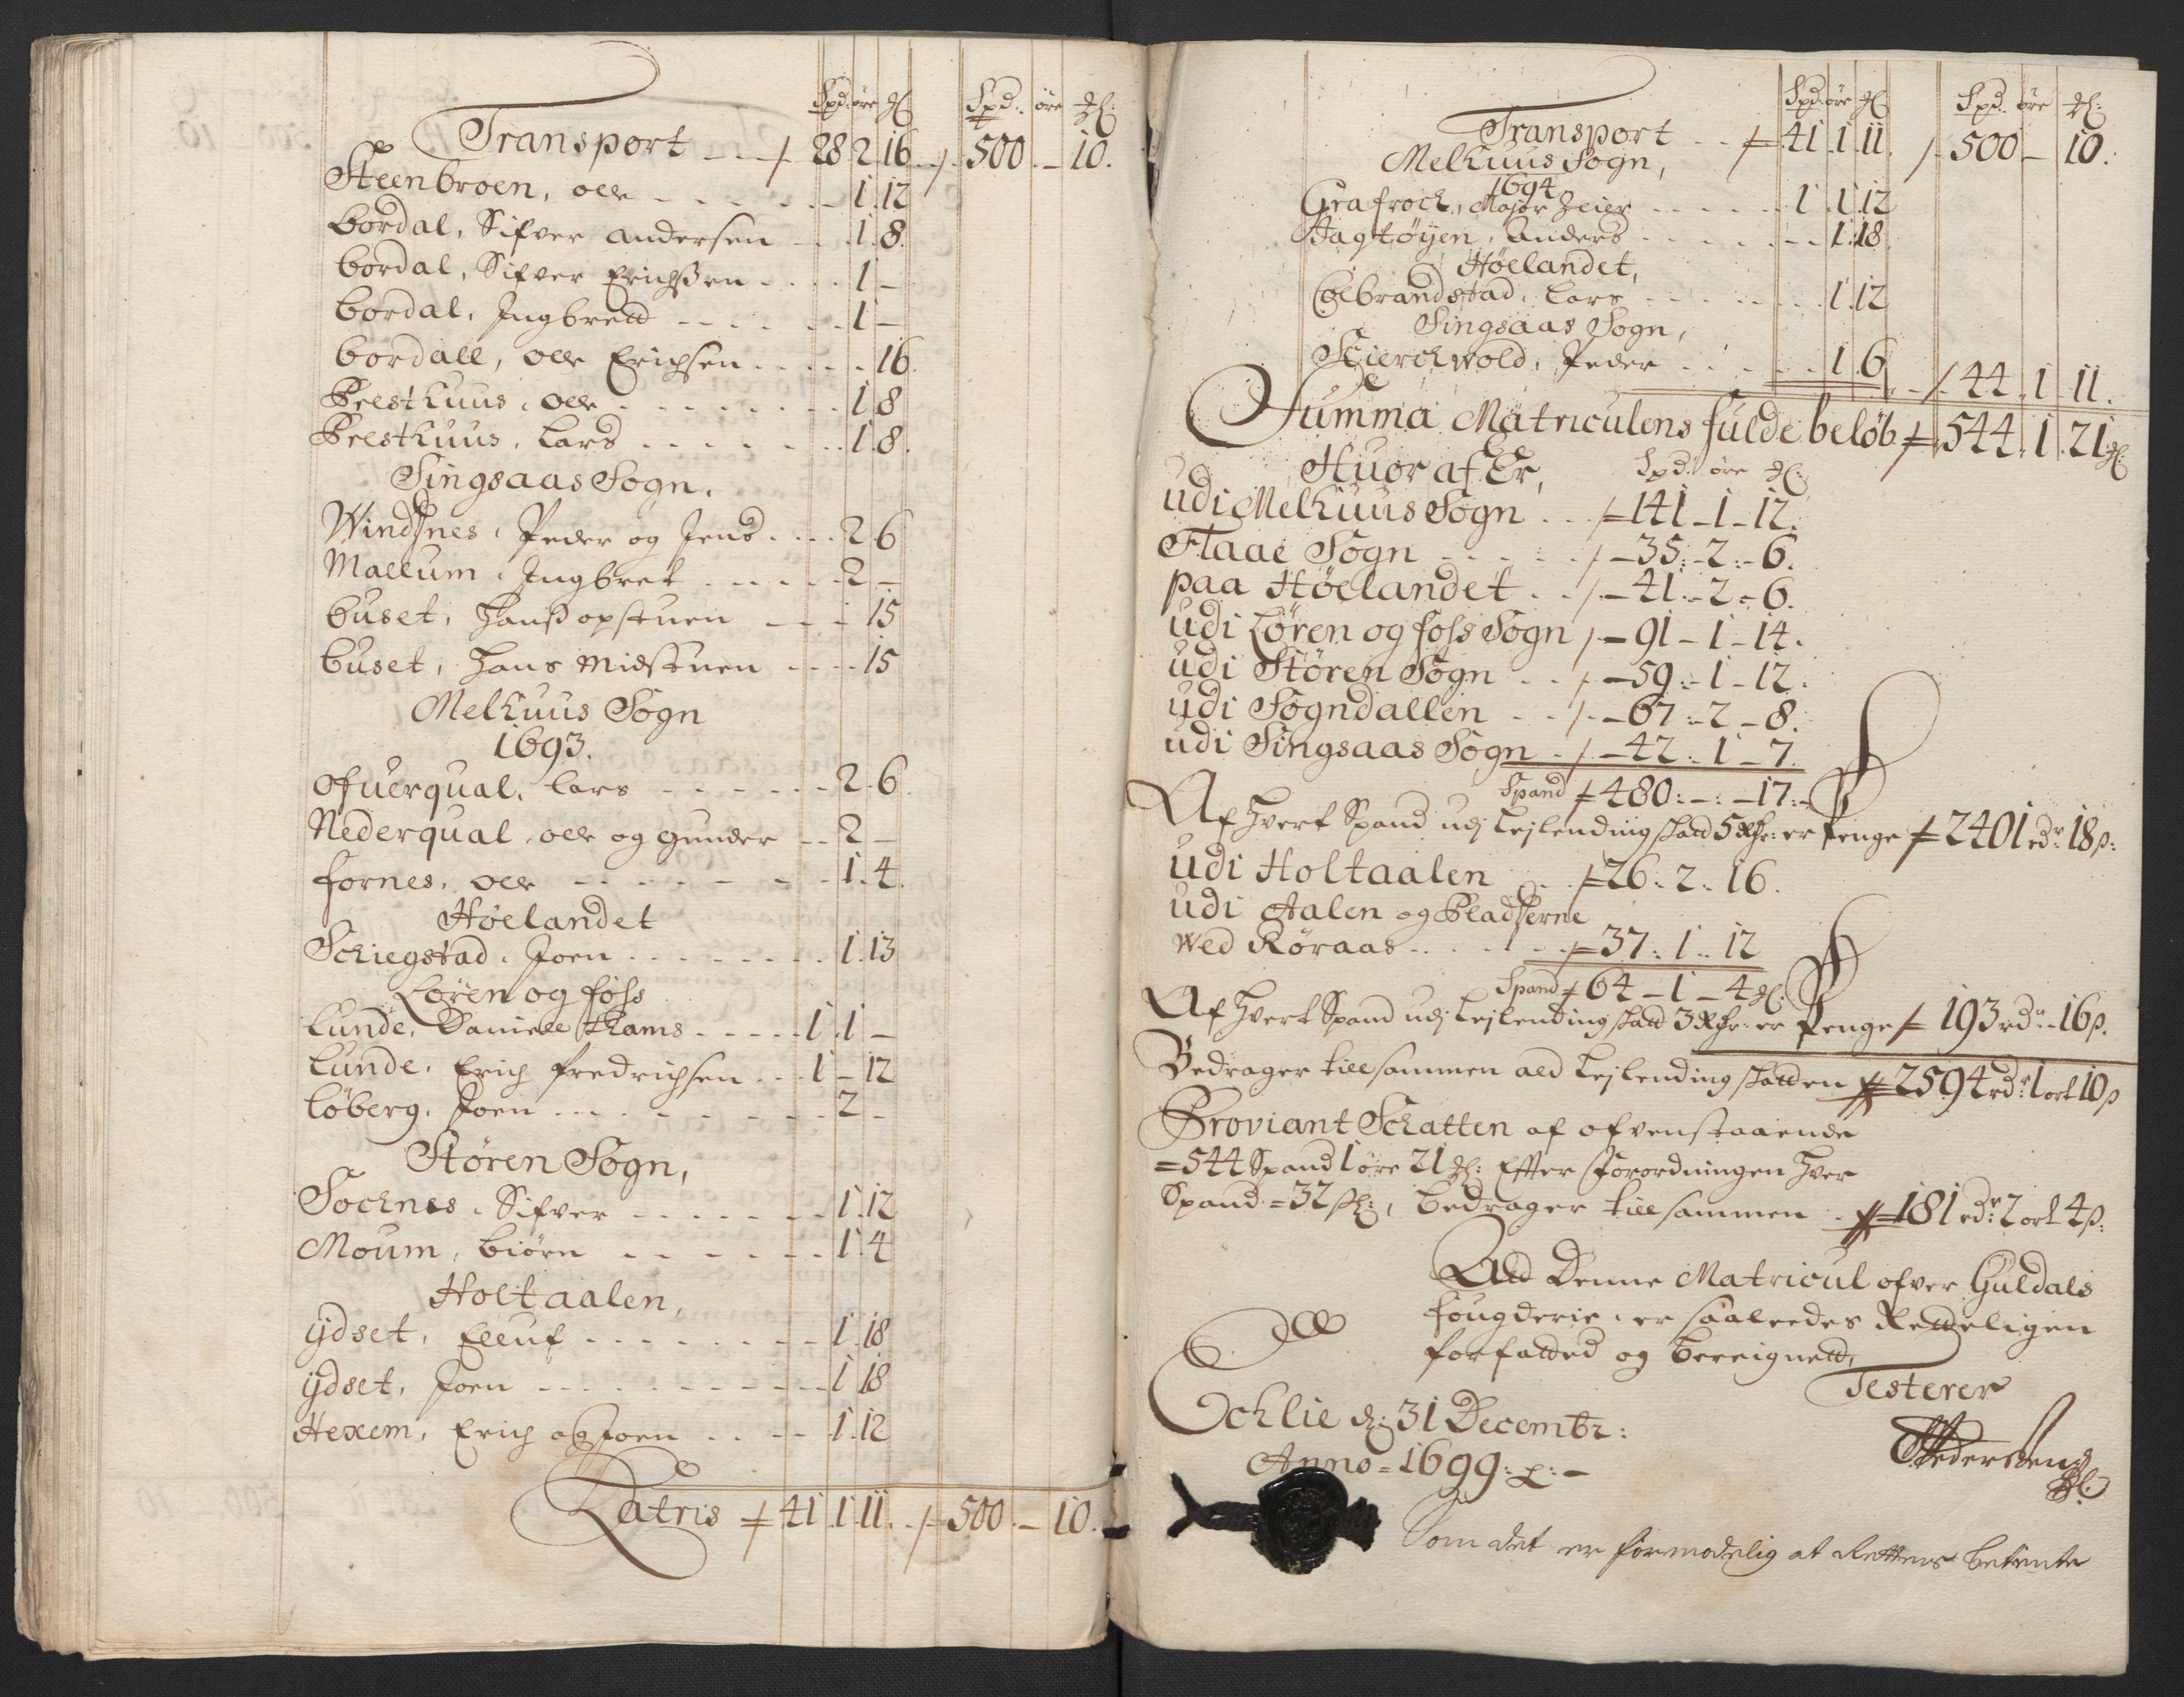 Spd: øre ₰  Spd: øre ₰:
Transport - - - 28 2 16 - 500 - 10.
Steenbroen, olle - - - 1. 12
Bordal, Sifver Andersen - - 1. 8.
bordal, Sifver Erichssen - - - 1 -
bordal, Ingbrett - - - 1 -
bordall, olle Erichsen - - - 16.
Prestkuus, olle - - - 1 8
Prestkuus, Lars - - - 1. 8.
Singsaas Sogn,
Windsnes, Peder og Jens - - - 2. 6
Mallum, Ingbret - - - 2 -
buset, Hanss opstuen - - - 15
buset, Hans Midstuen - - - 15
Melhuus Sogn
1693.
Ofuerqual, Lars - - - 2. 6.
Nederqual, olle og gunder - - 2 -
fornes, olle - - - 1. 4.
Høelandet
Schiegstad, Joen - - - 1. 13
Løren og foss
Lunde, Daniell Thams - - - 1. 1 -
Lunde, Erich fredrichsen - - 1 - 12
Løberg, Joen - - - 2 -
Støren Sogn,
Sochnes, Sifver - - - 1. 12
Moum, biørn - - - 1. 4
Holtaalen,
ÿdset, Elluf - - - 1. 18
ÿdset, Joen - - - 1 18
Hexem, Erich og Joen - - - 1. 12
Latris 41. 1. 11. - 500. - 10.
Spd: øre ₰  Spd. øre ₰:
Transport - - 41. 1. 11. 500 - 10.
Melhuus Sogn,
1694
Grafroch, Major Zeier - - - 1. 1. 12
Jagtøÿen, Anders - - - 1. 18
Høelandet,
Colbrandstad, Lars - - - 1. 12
Singsaas Sogn,
Kierchwold, Peder - - - 1 6 - 44. 1. 11.
Summa Matriculens fulde beløb 544. 1. 21 ₰
Huor af Er, Spd: øre ₰:
udi Melhuus Sogn - - 141 - 1 - 12.
Flaae Sogn - - - 35: - 2: - 6.
paa Høelandet - - 41. - 2 - 6.
udi Løren og foss Sogn - 91 - 1 - 14.
udi Støren Sogn - - 59: - 1 - 12.
udi Sogndallen - - 67: - 2 - 8.
udi Singsaas Sogn - 42: 1 - 7.
Spand 480: - : - 17: -
Af Hvert Spand udj Lejlending skatt 5 Rdr: er Penge 2401 rdr 18 s:
udi Holtaalen - - 26. 2. 16.
udi Aalen og Pladserne
wed Røraas - - - 37: 1. 12
Spand 64 - 1 - 4 ₰:
Af Hvert Spand udj Lejlending skatt 3 Rdr: er Penge 193 rdr - 16 s.
Bedrager tillsammen ald Lejlending skatten 2594 rdr: 1 ort 10 s
Proviant Schatten af ofvenstaaende
= 544 Spand 1 øre 21 ₰: Efter Forordningen Hver
Spand = 32 sk:, bedrager tillsammen - 181 rdr: 2 ort 4 s:
At Denne Matricul ofver Guldals
fougderie, er saaleedes Retteligen
forfatted og bereignett,
Testerer
Ochlie d: 31 Decembr:
Anno = 1699: -
Som det er formodelig at Rettens betiente